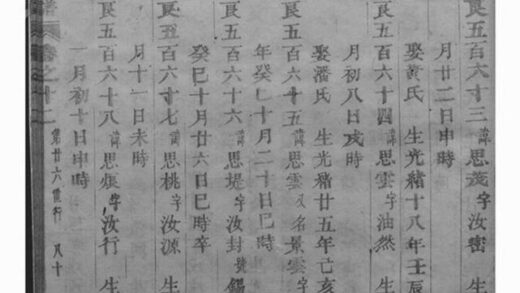 良五百六十三 諱思茂字汝密 生
月廿二日申時
娶黃氏 生光緒十八年壬辰
良五百六十四 諱思雲字油然 生
月初八日戌時
娶潘氏 生光緒廿五年己亥
良五百六十五 諱思雲又名景雲字
年癸 十月二十日巳時
良五百六十六 諱思堤字汝封號錫
癸巳十月廿六日巳時卒
良五百六十七 諱思桃字汝源 生
月十一日未時
良五百六十八 諱思 字汝行 生
一月初十日申時
譜 卷之十二 第廿六 行 八十